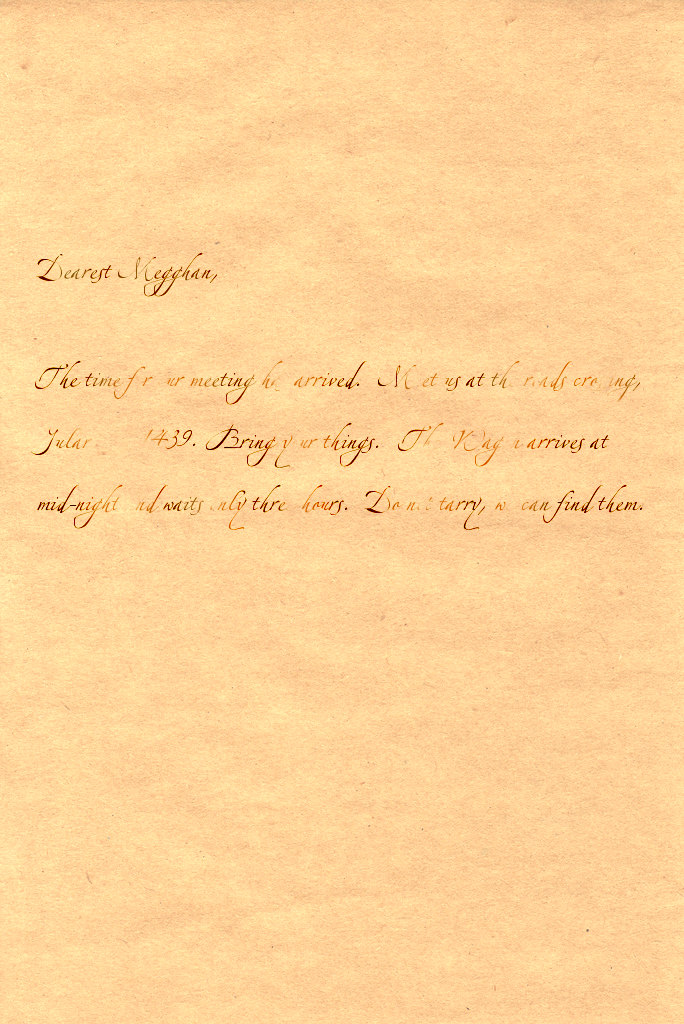 Dearest Megghan,
The time for our meeting has arrived. Meet us at the roads crossing,
Jular 1439. Bring your things. The Wagon arrives at
mid-night and waits only three hours. Do not tarry, we can find them.